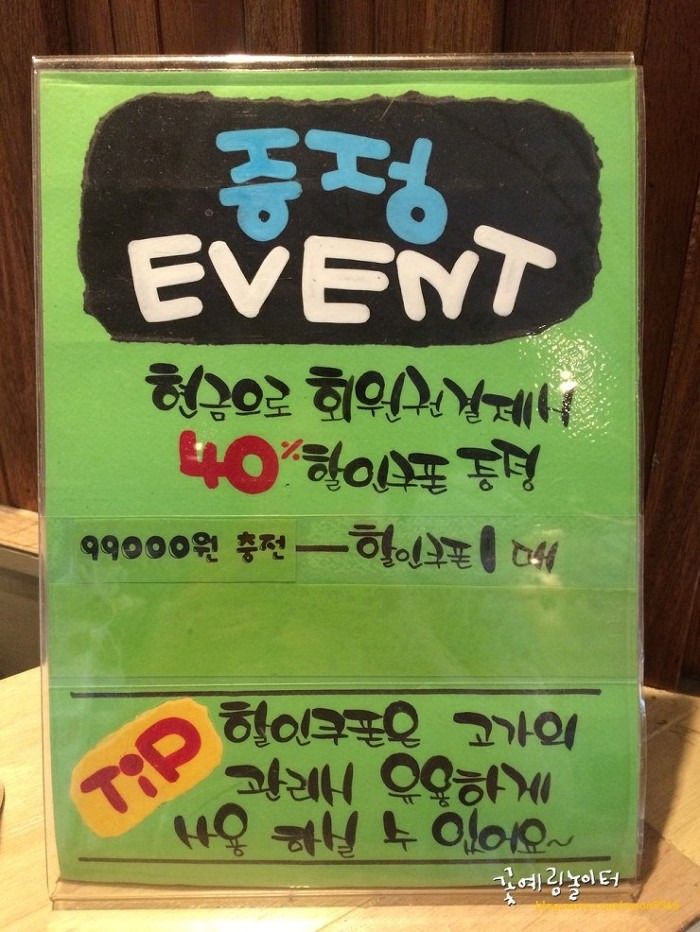 증정
EVENT
현금으로 회원권결제시
40% 할인쿠폰 증정
99000원 충전 — 할인쿠폰 1매
TiP 할인쿠폰은 고가의
관리시 유용하게
사용 하실 수 있어요~
꽃예링놀이터